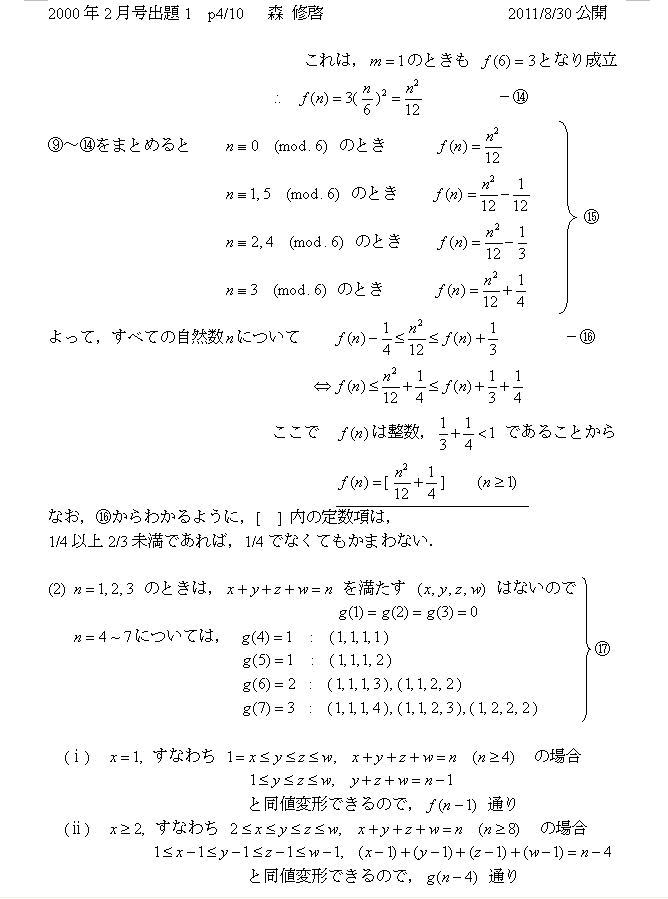 2000年2月号出題1 p4/10 森 修啓 2011/8/30 公開
これは，m = 1のときも f(6) = 3となり成立
∴ f(n) = 3(n/6)² = n²/12 －⑭
⑨～⑭をまとめると n ≡ 0 (mod. 6) のとき f(n) = n²/12
n ≡ 1, 5 (mod. 6) のとき f(n) = n²/12 − 1/12
n ≡ 2, 4 (mod. 6) のとき f(n) = n²/12 − 1/3
⑮
n ≡ 3 (mod. 6) のとき f(n) = n²/12 + 1/4
よって，すべての自然数nについて f(n) − 1/4 ≤ n²/12 ≤ f(n) + 1/3 －⑯
⇔ f(n) ≤ n²/12 + 1/4 ≤ f(n) + 1/3 + 1/4
ここで f(n)は整数，1/3 + 1/4 < 1 であることから
f(n) = [ n²/12 + 1/4 ] (n ≥ 1)
なお，⑯からわかるように，[ ] 内の定数項は，
1/4 以上 2/3 未満であれば，1/4 でなくてもかまわない．
(2) n = 1, 2, 3 のときは，x + y + z + w = n を満たす (x, y, z, w) はないので
g(1) = g(2) = g(3) = 0
n = 4 ~ 7 については， g(4) = 1 : (1, 1, 1, 1)
⑰
g(5) = 1 : (1, 1, 1, 2)
g(6) = 2 : (1, 1, 1, 3), (1, 1, 2, 2)
g(7) = 3 : (1, 1, 1, 4), (1, 1, 2, 3), (1, 2, 2, 2)
(ⅰ) x = 1, すなわち 1 = x ≤ y ≤ z ≤ w, x + y + z + w = n (n ≥ 4) の場合
1 ≤ y ≤ z ≤ w, y + z + w = n − 1
と同値変形できるので，f(n − 1) 通り
(ⅱ) x ≥ 2, すなわち 2 ≤ x ≤ y ≤ z ≤ w, x + y + z + w = n (n ≥ 8) の場合
1 ≤ x − 1 ≤ y − 1 ≤ z − 1 ≤ w − 1, (x − 1) + (y − 1) + (z − 1) + (w − 1) = n − 4
と同値変形できるので，g(n − 4) 通り